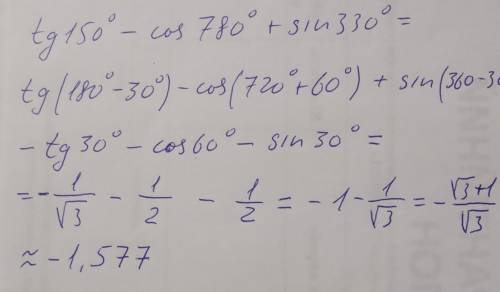 tg150° - cos 780° + sin330° =
tg(180°-30°) - cos(720°+60°) + sin(360-30
- tg30° - cos60° - sin30° =
= - 1/√3 - 1/2 - 1/2 = - 1 - 1/√3 = - √3+1/√3
≈ -1,577